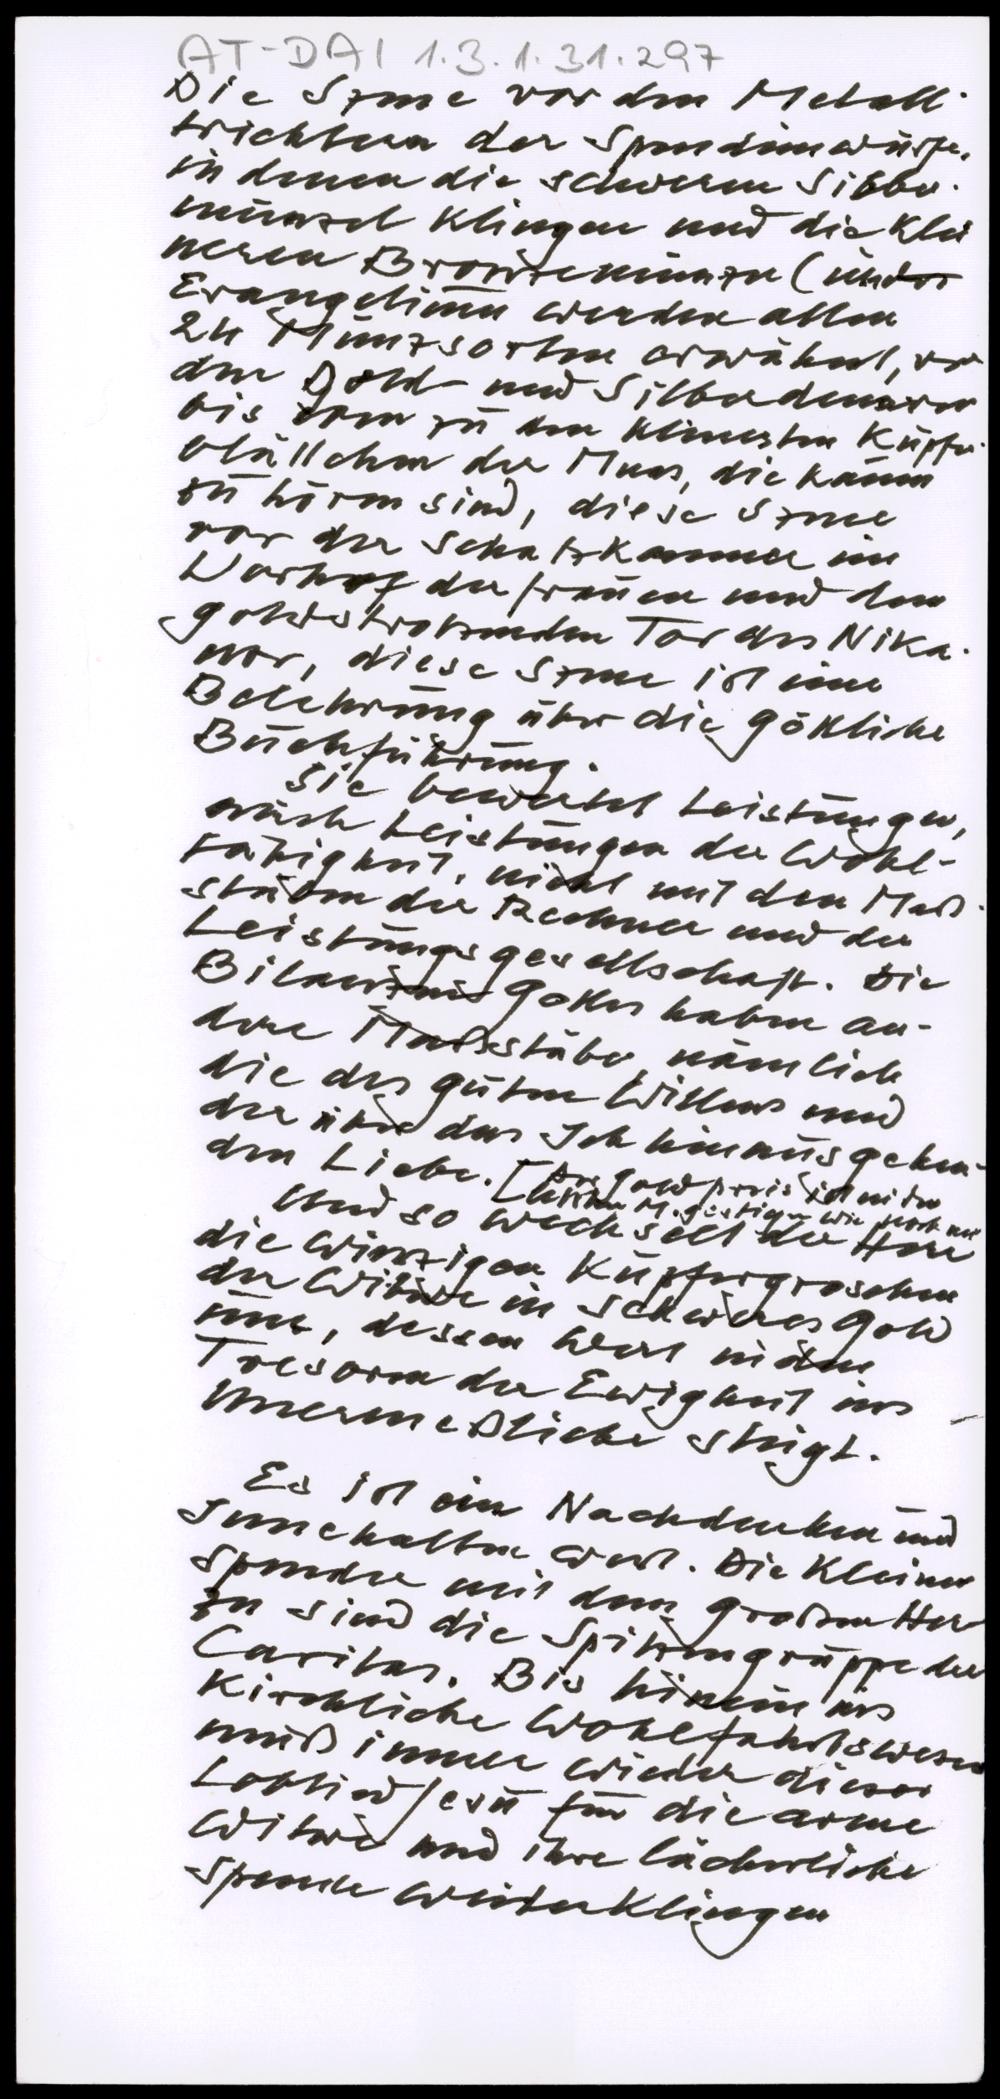 AT-DAI 1.3.1.31.297
Die Szene vor den Metall-
trichtern der Spendeneinwürfe,
in denen die schweren Silber-
münzen klingen und die klei
neren Bronzemünzen (in den
Evangelien werden allein
24 Münzsorten erwähnt, von
den Gold- und Silberdenaren
bis zu den kleinsten Kupfer-
blättchen der Muas, die kaum
zu hören sind, diese Szene
vor der Schatzkammer im
Vorhof der Frauen und dem
goldstrotzenden Tor des Nika-
nor, diese Szene ist eine
Belehrung über die göttliche
Buchführung.
Sie bewertet Leistungen,
auch Leistungen der Wohl-
tätigkeit, nicht mit den Maß-
stäben der Rechner und der
Leistungsgesellschaft. Die
Bilanzen Gottes haben an-
dere Maßstäbe, nämlich
die des guten Willens und
der über das Ich hinausgehen-
den Liebe. [Der Goldpreis ist in den
letzten M. gestiegen wie noch nie
Und so wechselt der Herr
die winzigen Kupfergroschen
der Witwe in schweres Gold
um, dessen Wert in den
Tresoren der Ewigkeit ins
Unermeßliche steigt.
Es ist ein Nachdenken und
Innehalten wert. Die kleinen
Spender mit dem großen Her
zen sind die Spitzengruppe der
Caritas. Bis hinein ins
kirchliche Wohlfahrtswesen
muß immer wieder dieses
Loblied Jesu für die arme
Witwe und ihre lächerliche
Spende weiterklingen